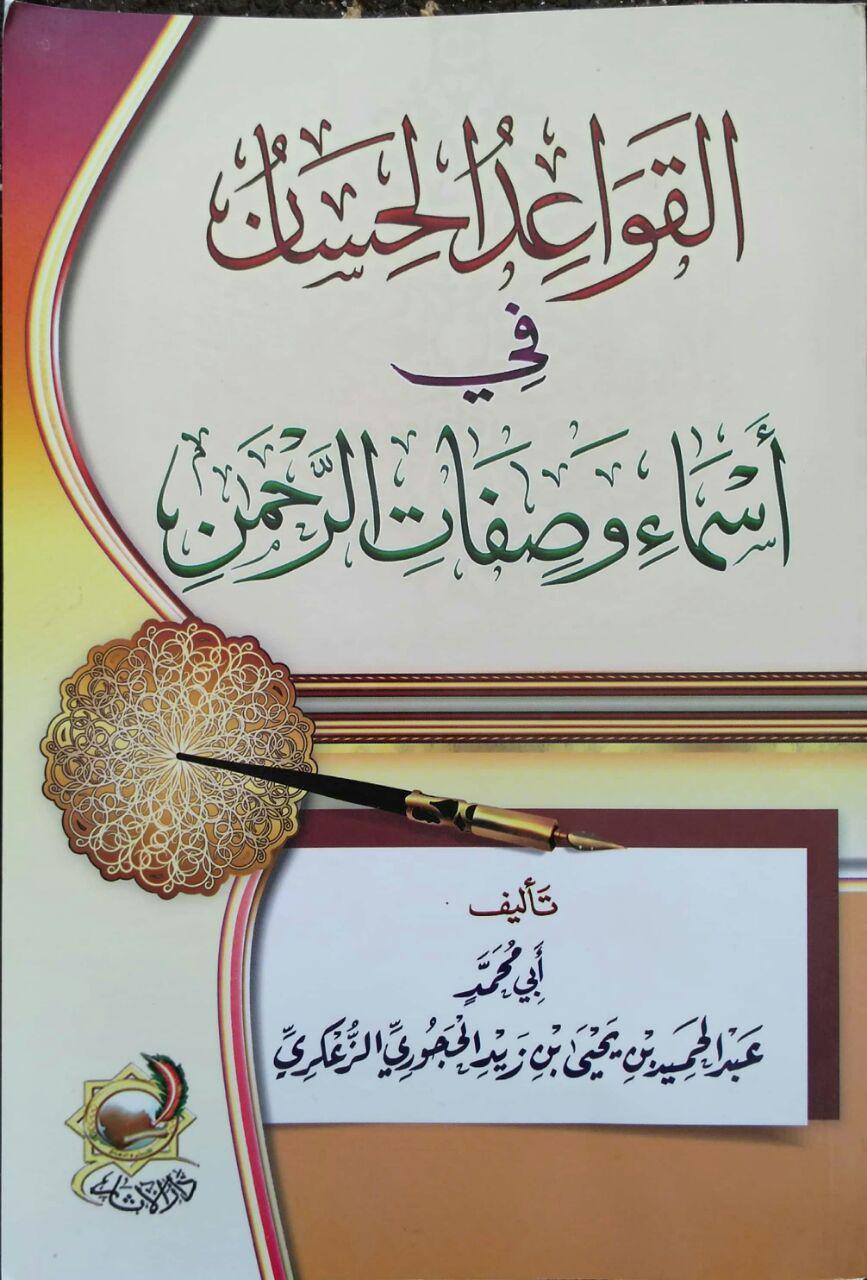 القَوَاعِدُ الحِسَانُ
فِي
أَسْمَاءِ وَصِفَاتِ الرَّحْمَنِ
تَأليف
أَبِي مُحَمَّدٍ
عَبْدِ الحَمِيدِ بْنِ يَحْيَىٰ بْنِ زَيْدٍ الحَجُورِيِّ الزُّعْكُرِيِّ
دار الآثار